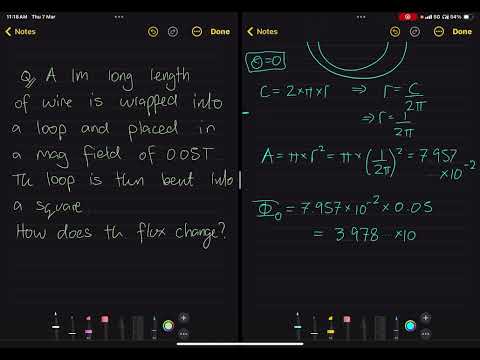 11:18AM Thu 7 Mar
5G 54%
Notes
Done
Q, A 1m long length
of wire is wrapped into
a loop and placed in
a mag field of 0.05T
Th loop is then bent into
a square
How does th flux change?
Notes
Done
θ=0
C = 2×π×r ⇒ r = C/2π
⇒ r = 1/2π
A = π×r² = π×(1/2π)² = 7.957
×10⁻²
Φ₀ = 7.957×10⁻² × 0.05
= 3.978 ×10